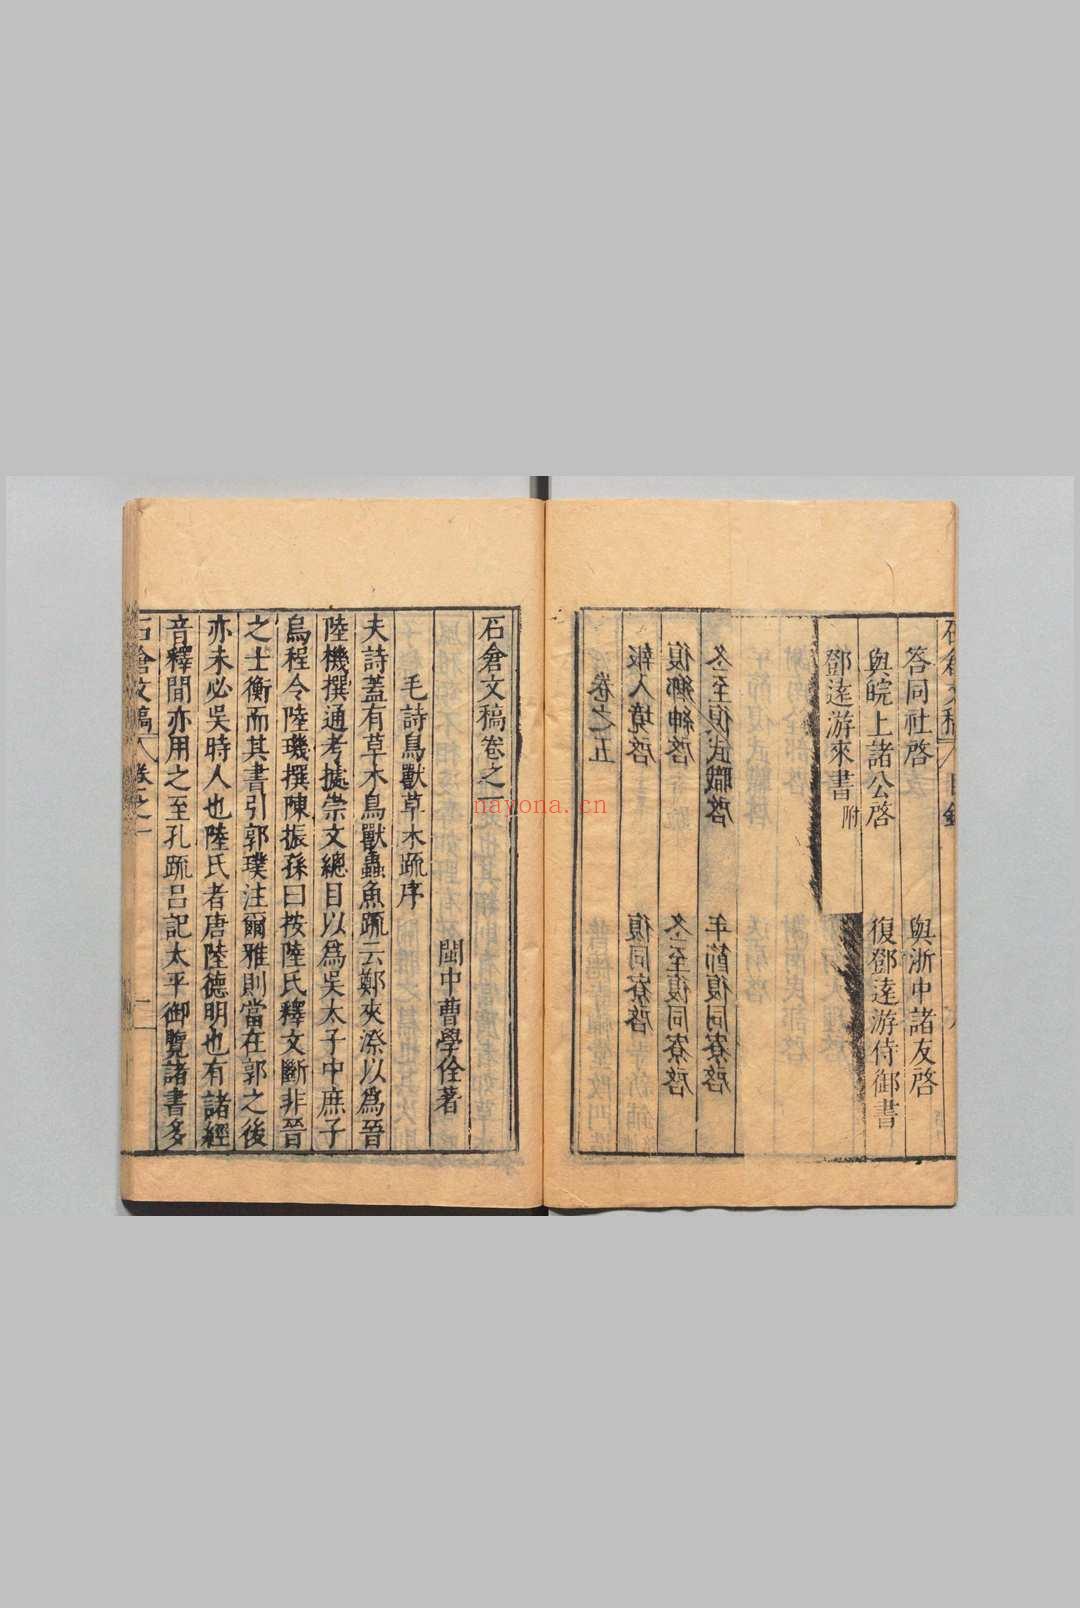 石倉文稿 目錄 八
答同社啓 與浙中諸友啓
與皖上諸公啓 復鄧遠游侍御書
鄧遠游來書附
冬至復武職啓 年節復同寮啓
復鄉紳啓 冬至復同寮啓
報入境啓 復同寮啓
卷之五
石倉文稿卷之一
閩中曹學佺著
毛詩鳥獸草木疏序
夫詩蓋有草木鳥獸蟲魚疏云鄭夾漈以為晉
陸機撰通考據崇文總目以為吳太子中庶子
烏程令陸璣撰陳振孫曰按陸氏釋文斷非晉
之士衡而其書引郭璞注爾雅則當在郭之後
亦未必吳時人也陸氏者唐陸德明也有諸經
音釋間亦用之至孔疏呂記太平御覽諸書多
石倉文稿 卷之一 一
nayona.cn